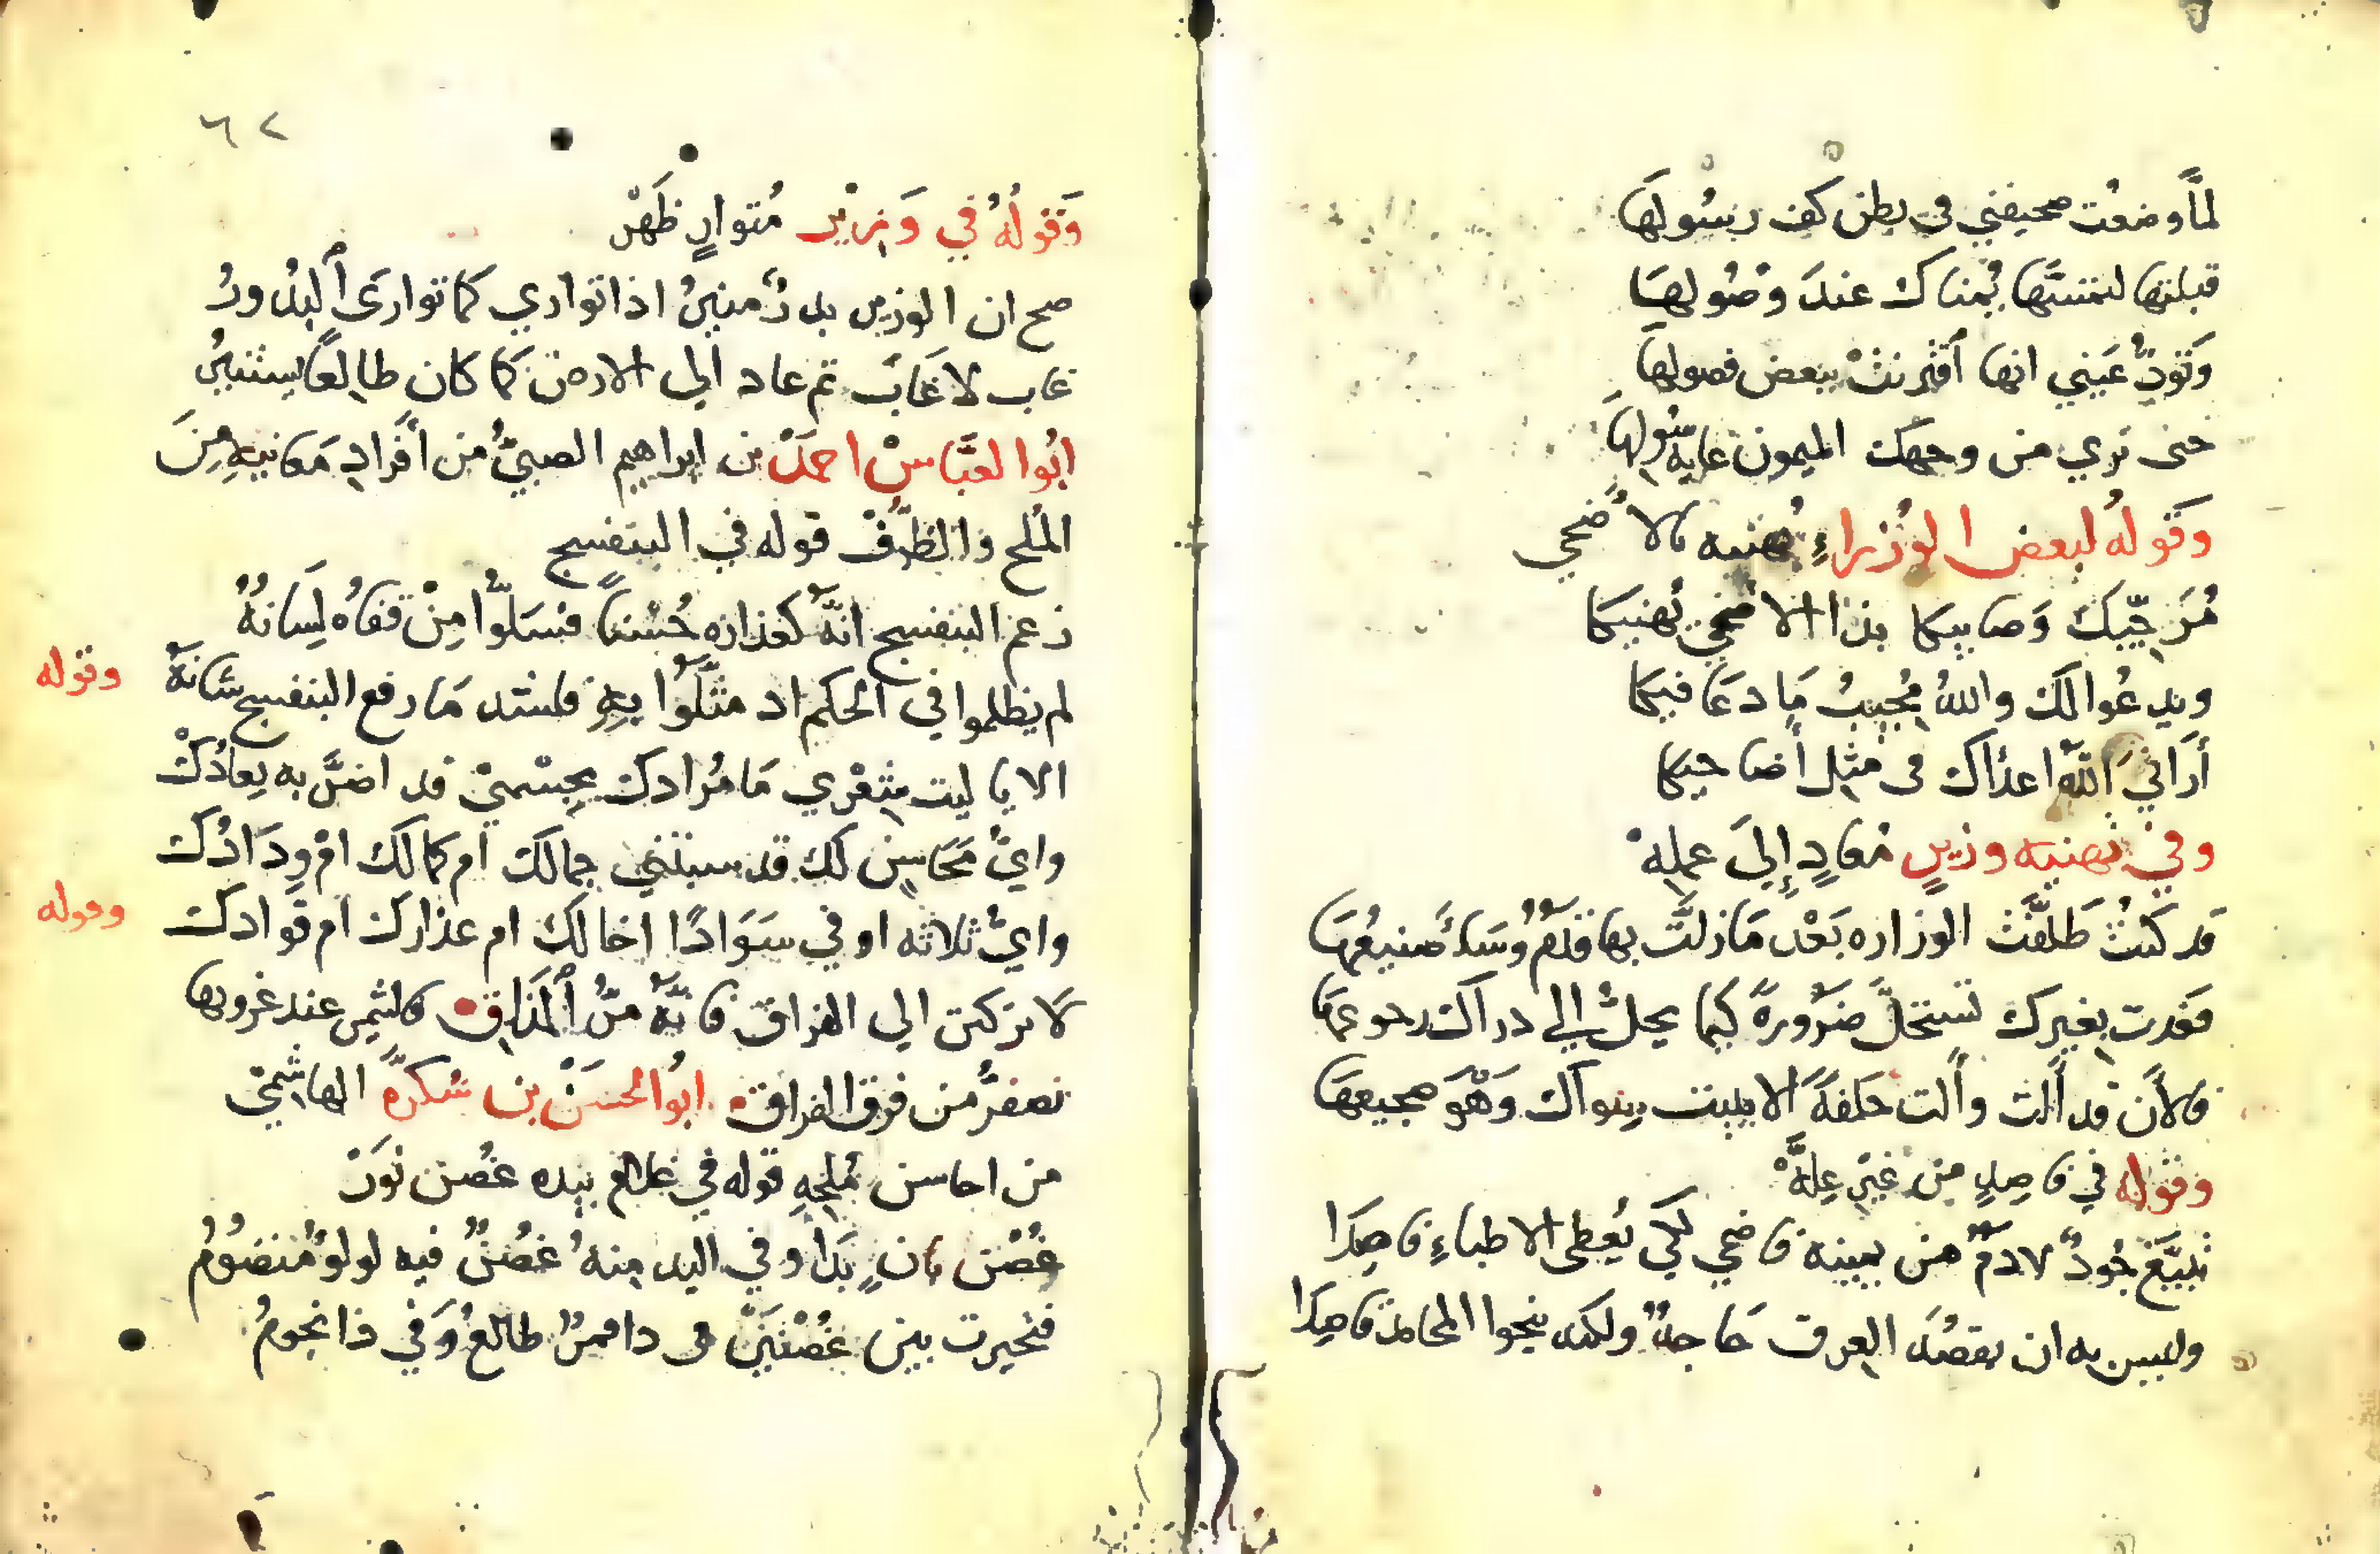 لمَّا وضعْت صحيفتي في بطن كف رسُولهَا
قبلتها لتمسَّها يُمناك عندَ وصُولهَا
وَتودُّ عَيني انها اَقترنتْ ببعض فصولها
حتى تري من وجهك الميمون غايه سُولهَا
وَقولهُ لبعض الوُزراءِ تُهنيه بالاضحي
مُرَجّيكَ وَصابيكا بذا الاضحي يُهنيكا
ويدعُوا لك واللهُ مُجيبُ مَا دعَا فيكا
أرَاني اللّهُ اعداك في مثل أضاحيكا
وفي تهنيه وزيرٍ مُعادٍ إلى عملهْ
قد كنتُ طَلَّقْتُ الوزاره بَعْد مَا زلَّت بها قدَمٌ وُسَاءَ صَنيعُهَا
فغدت بغيرك تستحلَّ ضرُورةً كيما يحل إلي دراك رجوعهَا
فالآن قد ألت وألت حَلفةً الا يبيت سواك وَهْوَ ضجيعهَا
وقوله في فاصدٍ من غير عِلَّهْ
تبيَّغ جُودٌ لا دمٌ من يمينه فاضحي لكي يُعطى الاطباءِ فاصِدَا
وليس به ان يقصُدَ العرق حَاجةٌ ولكنه ينحوا المحامد قاصِدَا
٦٢
وَقولُهُ في وَزيْر مُتوارٍ ظَهَرْ
صح ان الوزير بدرٌ منيرُ اذا تواري كما توارىَ اُلبدُورُ
غاب لا غَابَ ثم عاد الي الارض كما كان طالِعًا يستنيرُ
ابُوا لعبَّاسْ احمدْ بن ابراهيم الضبيّ من أفْرادِ مَعَانيه مِنَ
المُلح والظرْف قوله في البنفسج
زعم البنفسج انَّه كعذاره حُسْناً فسَلّوُا مِنْ قفاهُ لِسَانهُ
لم يظلموا في الحكم اد مثَّلوُا بهِ فلشد مَا رفع البنفسج شانهُ
وقوله
الا يا ليت شِعْري مَا مُرادك بجِسْميْ قد اضرَّ به بِعادُكْ
وايُّ مَحَاسِن لك قد سبتني جمالك اَم كمالك امْ وِدَادُك
وايُّ ثلاثه اوفي سَوَادًا اخالك ام عذارك ام فوادك
وقوله
لَا تركنن الي الفراق فانَّه مرُّ اُلمَذاق فالشمس عند غروبها
تصفرُّ من فرق الفراق ابوُ الحسَن بن سُكرَّه الهاشِميّ
من احاسن مُلحِهِ قوله في غلام بيده غصْن نَورْ
غُصْن بانٍ بَدا وفي اليد منهُ غصُنٌ فيه لولوٌ مُنضوُمُ
فتحيرت بين غُصْنَيْن في دا قمرٌ طالعٌ وَفي ذا نجومُ